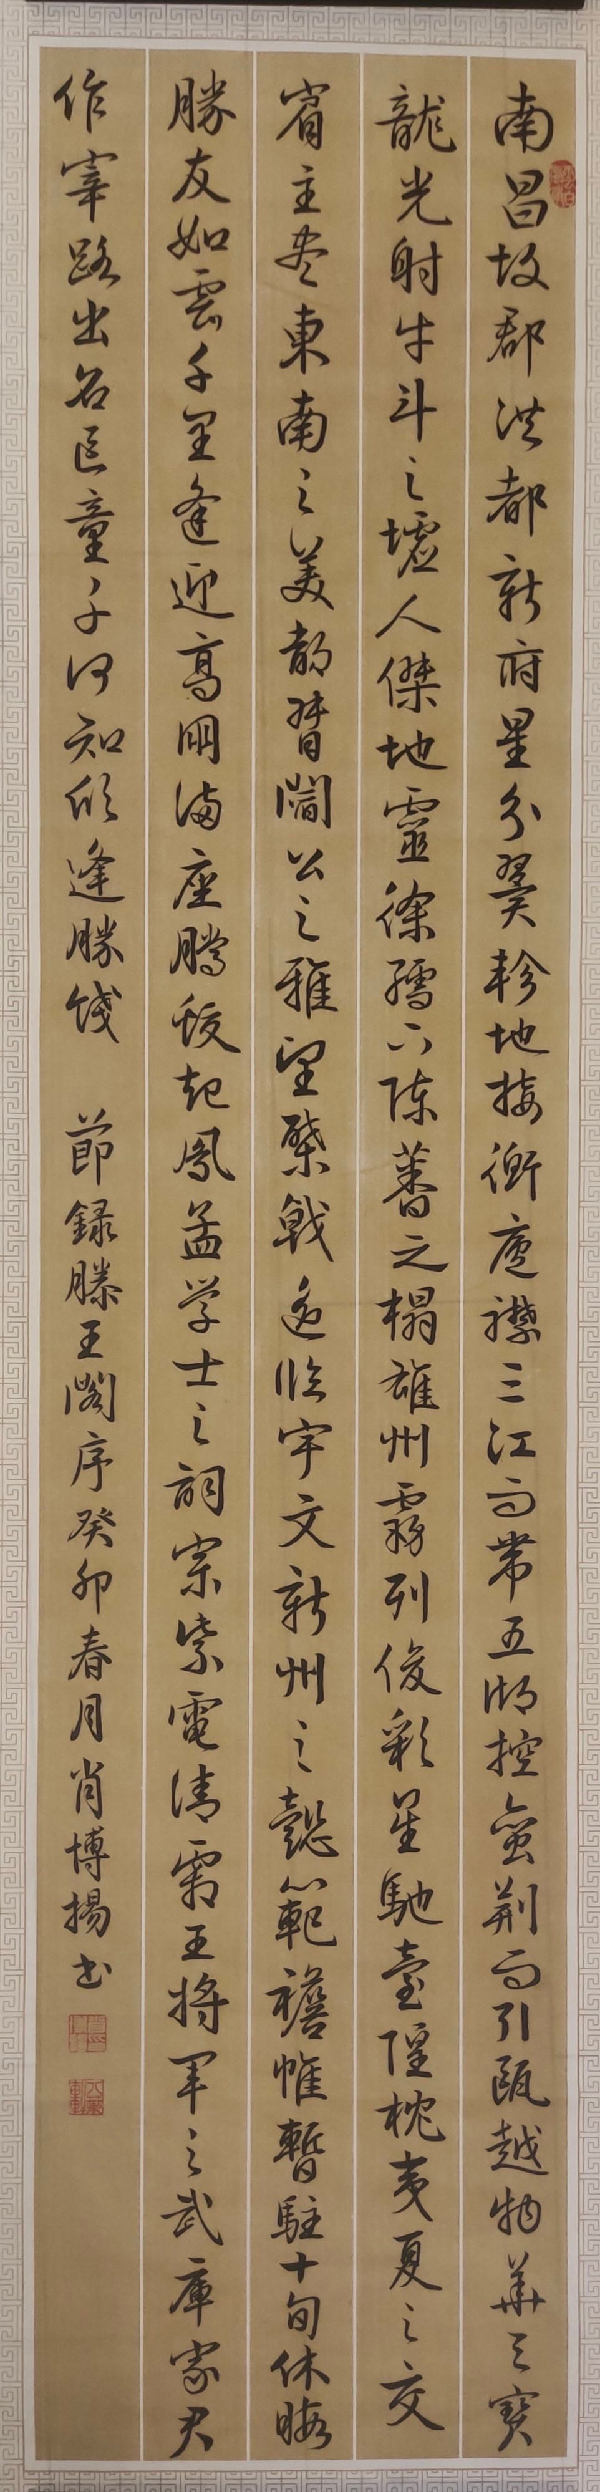 南昌故郡洪都新府星分翼軫地接衡廬襟三江而帶五湖控蠻荊而引甌越物華天寶
龍光射牛斗之墟人傑地靈徐孺下陳蕃之榻雄州霧列俊彩星馳臺隍枕夷夏之交
賓主盡東南之美都督閻公之雅望棨戟遙臨宇文新州之懿範襜帷暫駐十旬休暇
勝友如雲千里逢迎高朋滿座騰蛟起鳳孟学士之詞宗紫電清霜王将軍之武庫家君
作宰路出名區童子何知躬逢勝餞 節錄滕王閣序癸卯春月肖博揚書